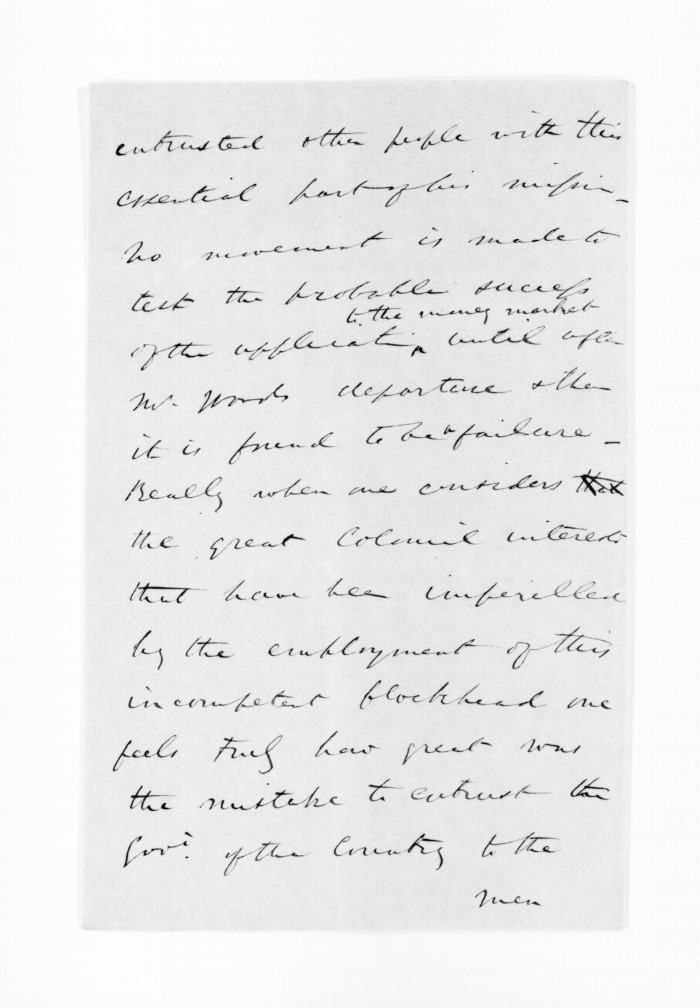 entrusted other people with this
essential part of his mission_
No movement is made to
test the probable success
to the money market
of the application ^ until after
Mr. Wards departure & then
it is found to be a failure_
Really when one considers that
the great Colonial interests
that have been imperilled
by the employment of this
incompetent blockhead one
feels truly how great was
the mistake to entrust the
Govt. of the Country to the
men